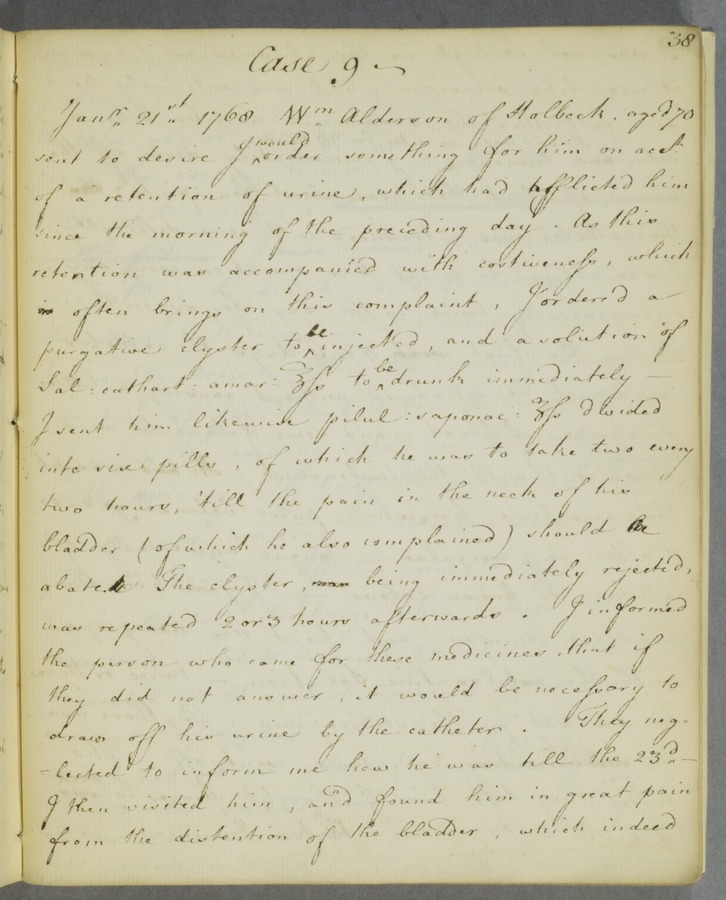 38
Case 9 ~
Janry. 21st. 1768 Wm. Alderson of Holbeck, aged 70
sent to desire I would order something for him on acct.
of a retention of urine, which had afflicted him
since the morning of the preceding day. As this
retention was accompanied with costiveness, which
often brings on this complaint, I order'd a
purgative clyster to be injected, and a solution of
Sal: cathart: amar: ℥ss to be drunk immediately —
I sent him likewise pilul: saponac: ʒss divided
into six pills, of which he was to take two every
two hours, 'till the pain in the neck of his
bladder (of which he also complained) should
abate. The clyster, being immediately rejected,
was repeated 2 or 3 hours afterwards. I informed
the person who came for these medicines that if
they did not answer, it would be necessary to
draw off his urine by the catheter. They neg-
-lected to inform me how he was till the 23d. —
I then visited him, and found him in great pain
from the distention of the bladder, which indeed